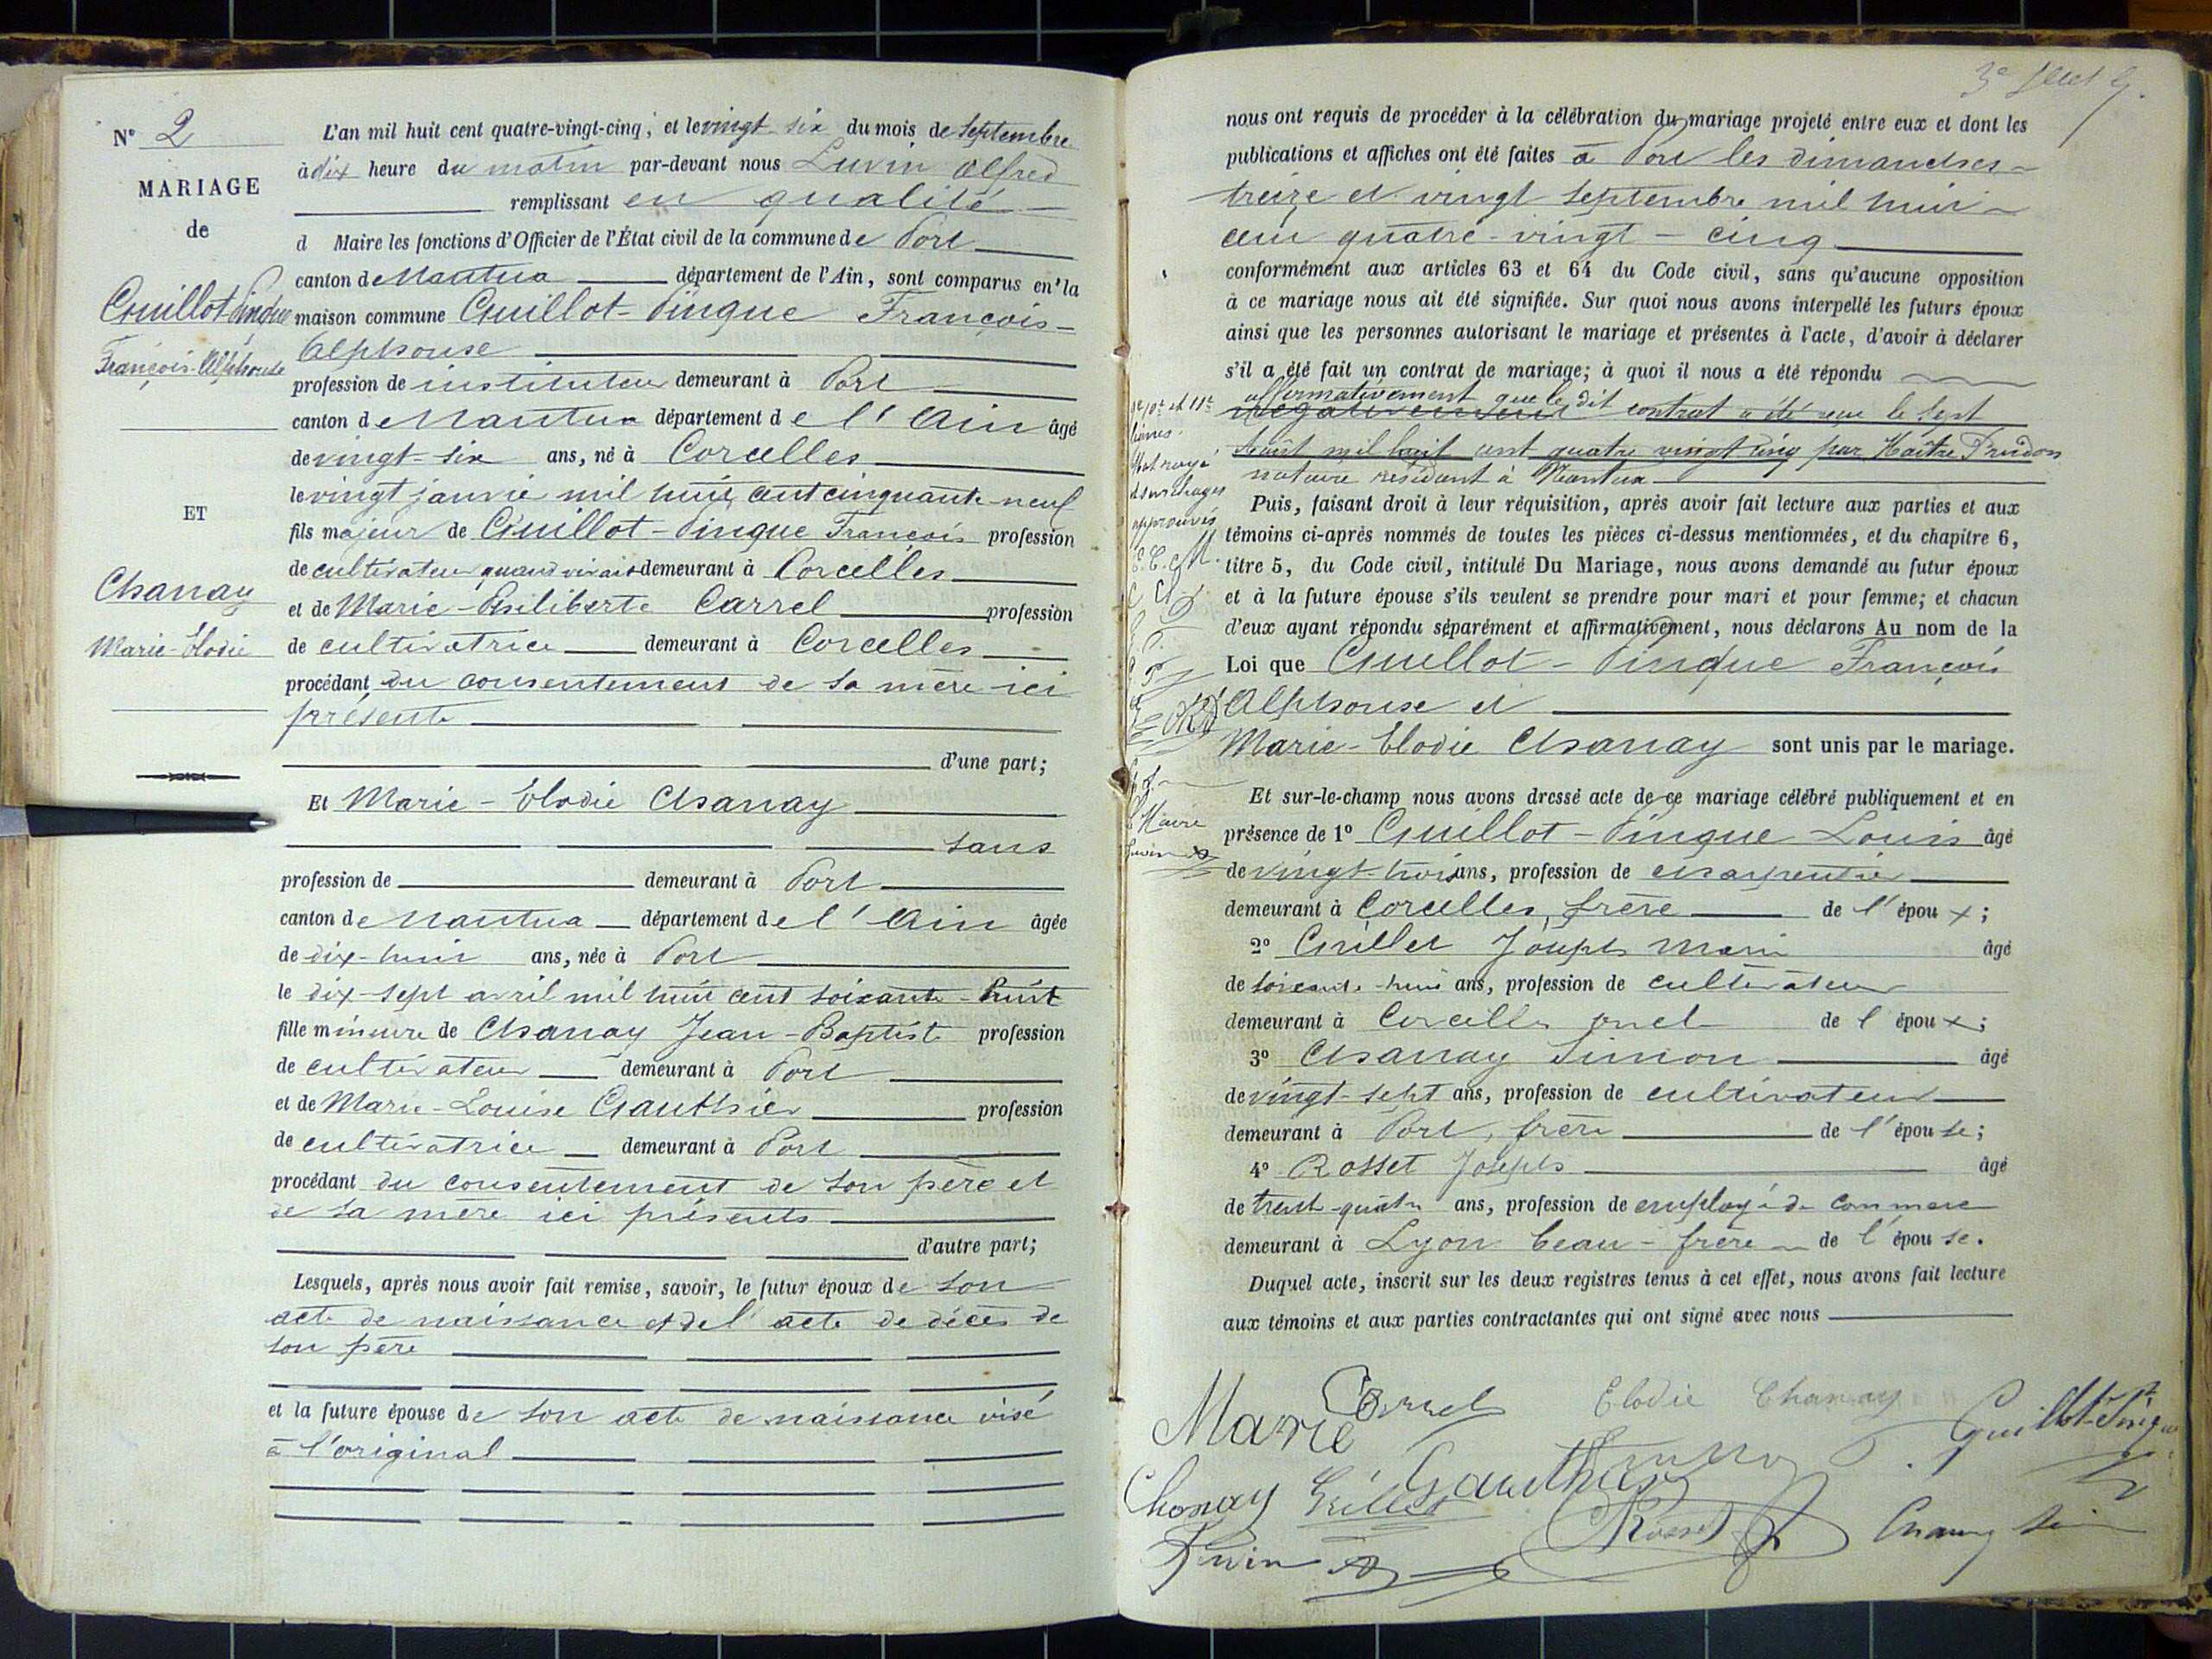 N° 2
MARIAGE
de
Guillot-Pingue
François-Alphonse
ET
Chanay
Marie-Elodie
L'an mil huit cent quatre-vingt-cinq, et le vingt-six du mois de Septembre
à dix heure du matin par-devant nous Luvin Alfred
remplissant en qualité
d Maire les fonctions d'Officier de l'État civil de la commune de Port
canton de Nantua département de l'Ain, sont comparus en la
maison commune Guillot-Pingue François-
Alphonse
profession de instituteur demeurant à Port
canton de Nantua département de l'Ain âgé
de vingt-six ans, né à Corcelles
le vingt janvier mil huit cent cinquante-neuf
fils majeur de Guillot-Pingue François profession
de cultivateur quand vivait demeurant à Corcelles
et de Marie-Philiberte Carrel profession
de cultivatrice demeurant à Corcelles
procédant du consentement de sa mère ici
présente
d'une part;
Et Marie-Elodie Chanay
sans
profession de demeurant à Port
canton de Nantua département de l'Ain âgée
de dix-huit ans, née à Port
le dix-sept avril mil huit cent soixante-huit
fille mineure de Chanay Jean-Baptist profession
de cultivateur demeurant à Port
et de Marie-Louise Gauthier profession
de cultivatrice demeurant à Port
procédant du consentement de son père et
de sa mère ici présents
d'autre part;
Lesquels, après nous avoir fait remise, savoir, le futur époux de son
acte de naissance et de l'acte de décès de
son père
et la future épouse de son acte de naissance visé
à l'original
nous ont requis de procéder à la célébration du mariage projeté entre eux et dont les
publications et affiches ont été faites à Port les dimanches
treize et vingt Septembre mil huit
cent quatre-vingt-cinq
conformément aux articles 63 et 64 du Code civil, sans qu'aucune opposition
à ce mariage nous ait été signifiée. Sur quoi nous avons interpellé les futurs époux
ainsi que les personnes autorisant le mariage et présentes à l'acte, d'avoir à déclarer
s'il a été fait un contrat de mariage; à quoi il nous a été répondu
affirmativement que le dit
négativement contrat a été reçu le sept
Août mil huit cent quatre vingt cinq par Maître Prudon
notaire résidant à Nantua
Puis, faisant droit à leur réquisition, après avoir fait lecture aux parties et aux
témoins ci-après nommés de toutes les pièces ci-dessus mentionnées, et du chapitre 6,
titre 5, du Code civil, intitulé Du Mariage, nous avons demandé au futur époux
et à la future épouse s'ils veulent se prendre pour mari et pour femme; et chacun
d'eux ayant répondu séparément et affirmativement, nous déclarons Au nom de la
Loi que Guillot-Pingue François
Alphonse et
Marie-Elodie Chanay sont unis par le mariage.
Et sur-le-champ nous avons dressé acte de ce mariage célébré publiquement et en
présence de 1° Guillot-Pingue Louis âgé
de vingt-trois ans, profession de charpentier
demeurant à Corcelles, frère de l'époux;
2° Grillet Joseph Marie âgé
de soixante-huit ans, profession de cultivateur
demeurant à Corcelles oncle de l'époux;
3° Chanay Simon âgé
de vingt-sept ans, profession de cultivateur
demeurant à Port, frère de l'épouse;
4° Rosset Joseph âgé
de trente-quatre ans, profession de employé de commerce
demeurant à Lyon beau-frère de l'épouse.
Duquel acte, inscrit sur les deux registres tenus à cet effet, nous avons fait lecture
aux témoins et aux parties contractantes qui ont signé avec nous
Mot rayé
et surchages
approuvés
Le Maire
Luvin
Marie Carrel Elodie Chanay Guillot-Pingue
Chanay Grillet Gauthier
Luvin Rosset Chanay